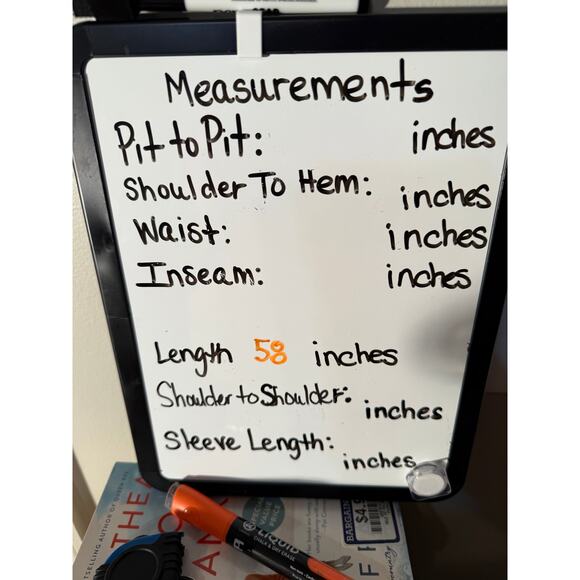 Measurements
Pit to Pit: inches
Shoulder To Hem: inches
Waist: inches
Inseam: inches
Length 58 inches
Shoulder to Shoulder: inches
Sleeve Length: inches
THE
LIQUID
CHALK & DRY ERASE
BARGAIN